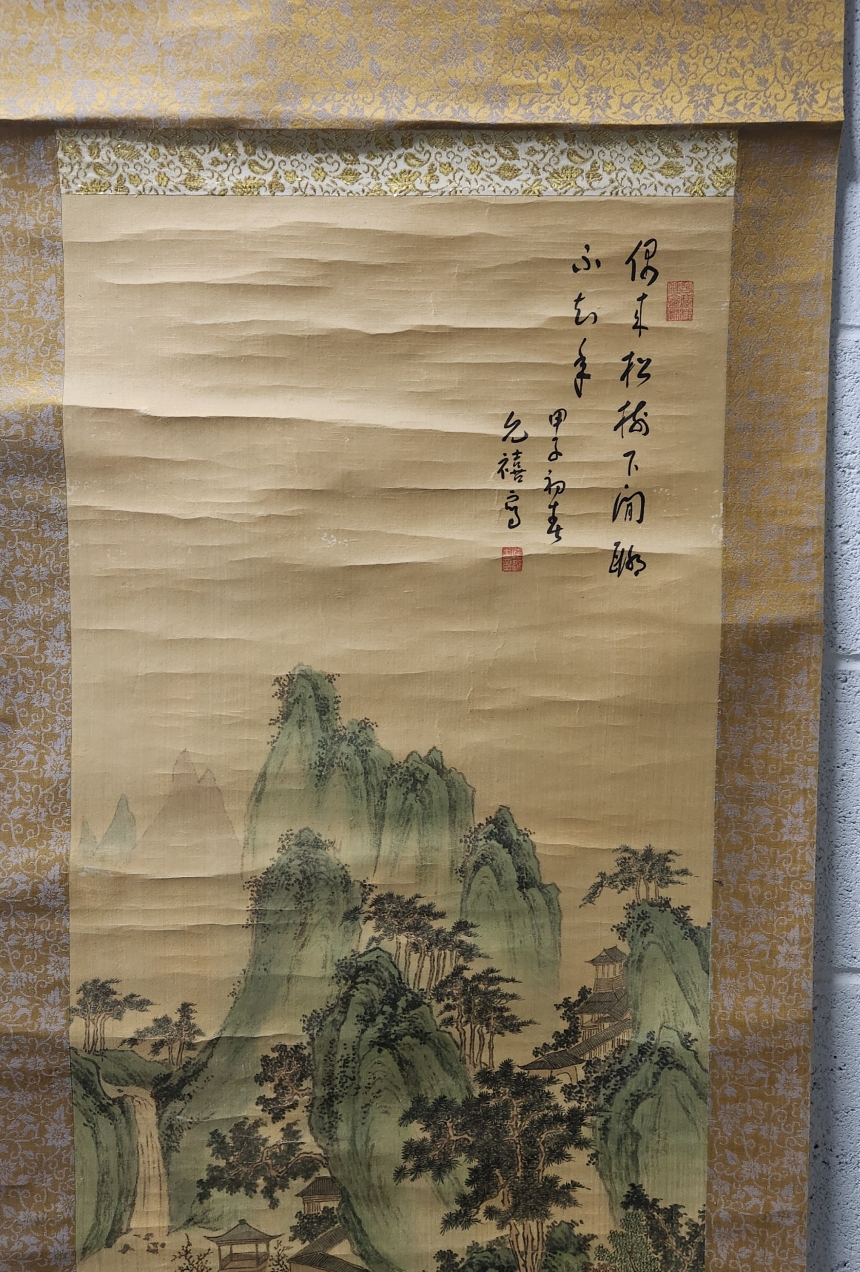 偶來松樹下閒聊
不知年
甲子初春
允禧寫